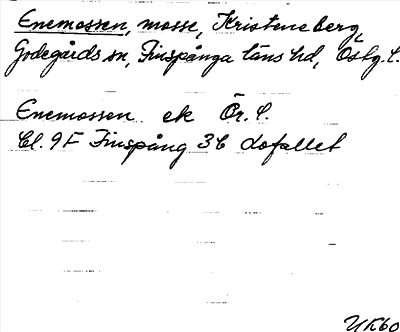 Enemossen, mosse, Kristeneberg,
Godegårds sn, Finspånga läns hd, Östg. l.
Enemossen ek Ör. l.
bl. 9F Finspång 3b Lofallet
UK60